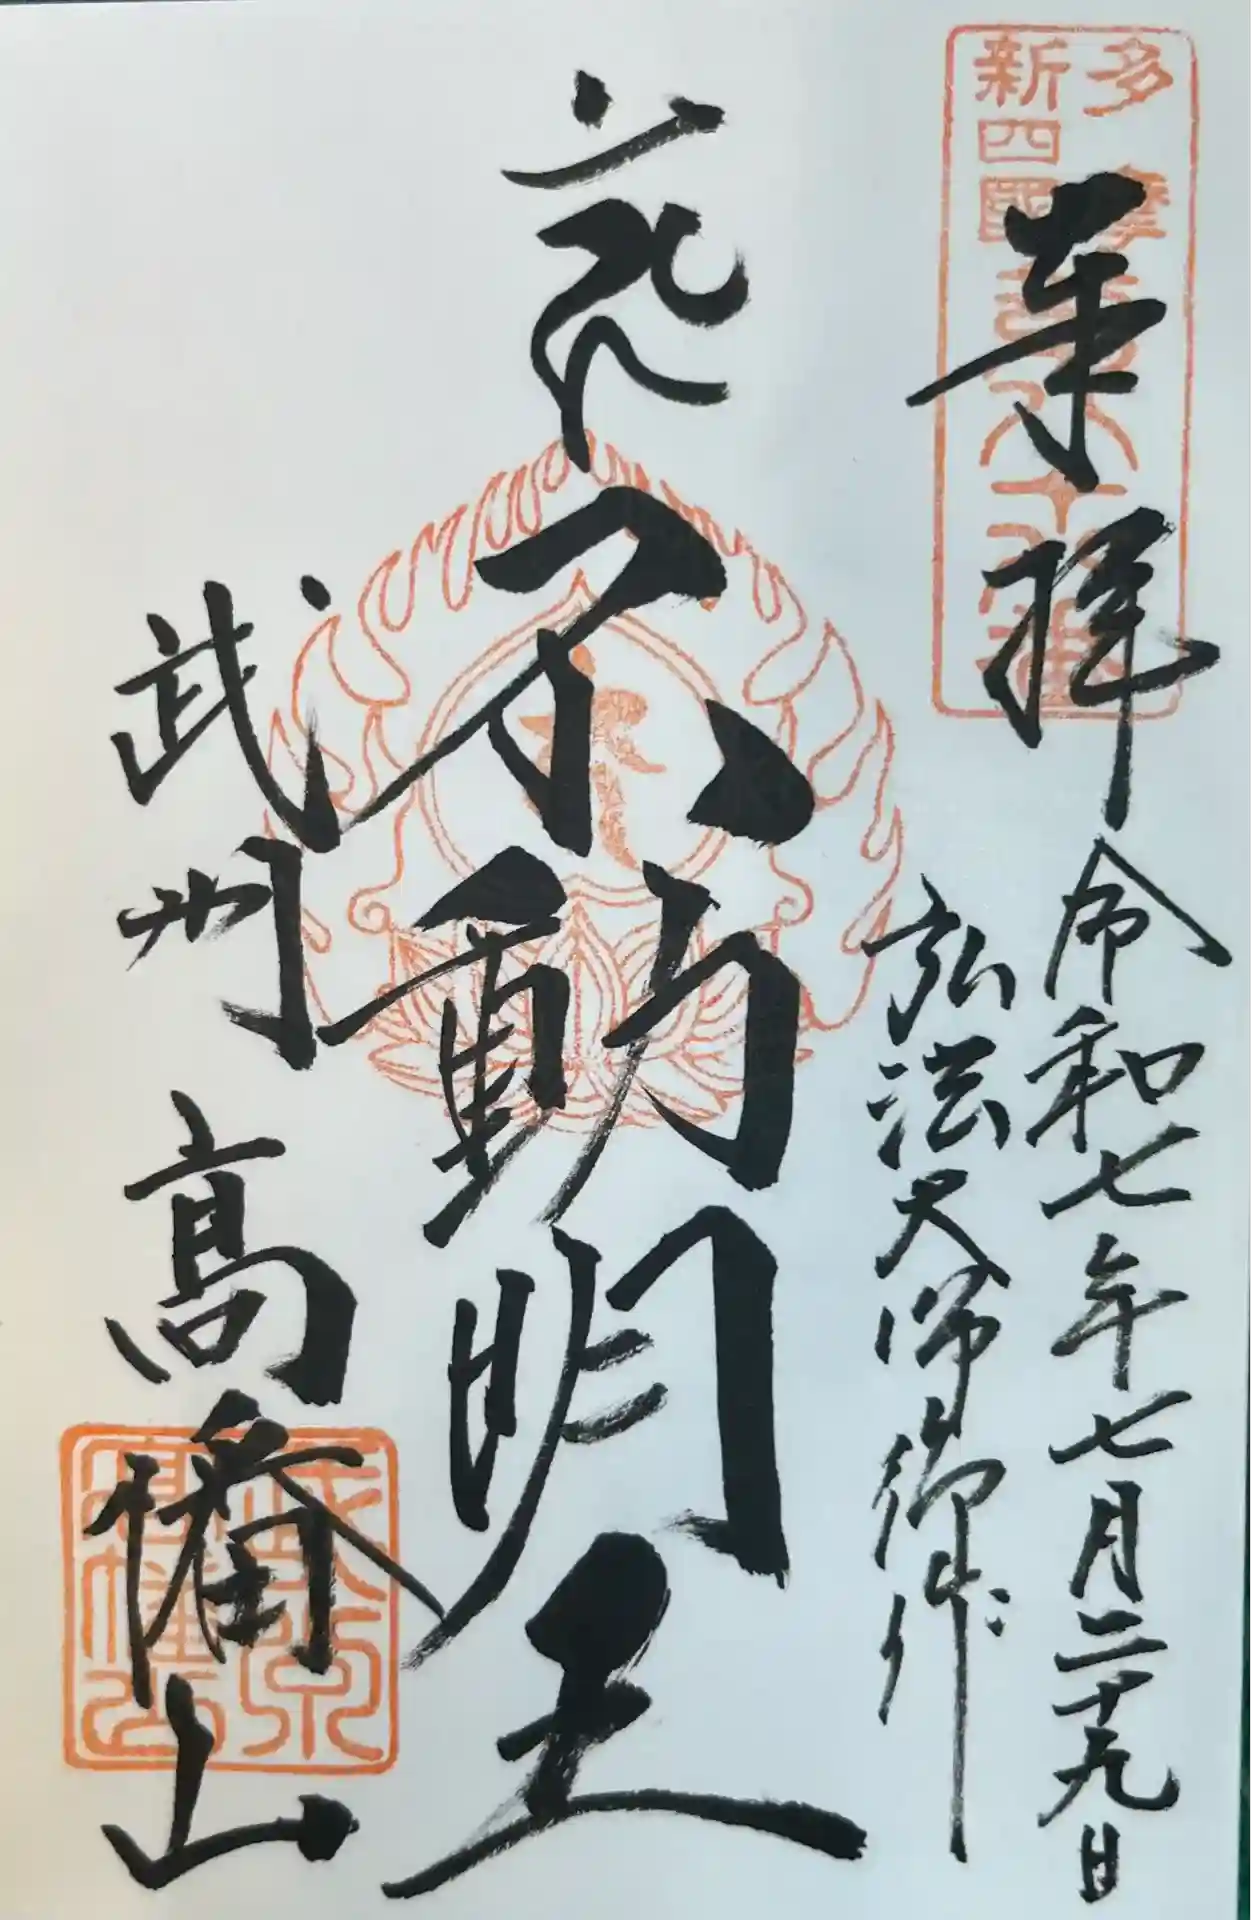 多摩
新四國
八十八番
奉拝
令和七年七月二十九日
弘法大師御作
不動明王
武州 高幡山